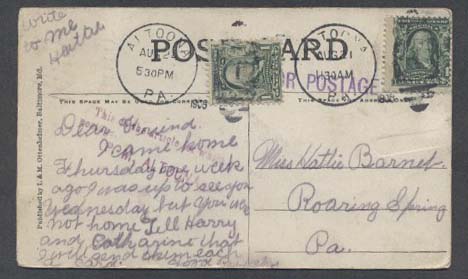 write
to me
Hattie
POST CARD
ALTOONA
AUG
5 30 PM
PA.
1908
ALTOONA
AUG 21
30 AM
PA.
OR POSTAGE
THIS SPACE MAY BE
Published by I. & M. Ottenheimer, Baltimore, Md.
Dear Friend
I came home
Thursday one week
ago I was up to see you
Wednesday but you were
not home Tell Harry
and Catharine that
I will send them each
Miss Hattie Barnet
Roaring Spring
Pa.